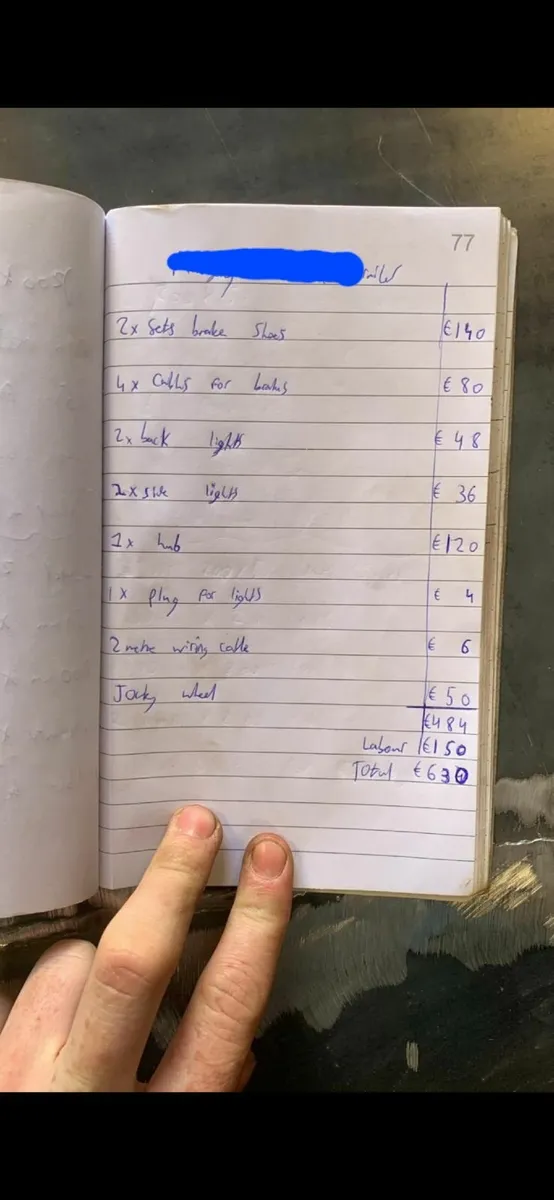 77
2x Sets brake Shoes €140
4x Cables for brakes € 80
2x back lights € 48
2x side lights € 36
1x hub €120
1x plug for lights € 4
2 metre wiring cable € 6
Jocky wheel € 50
€484
Labour €150
Total €630